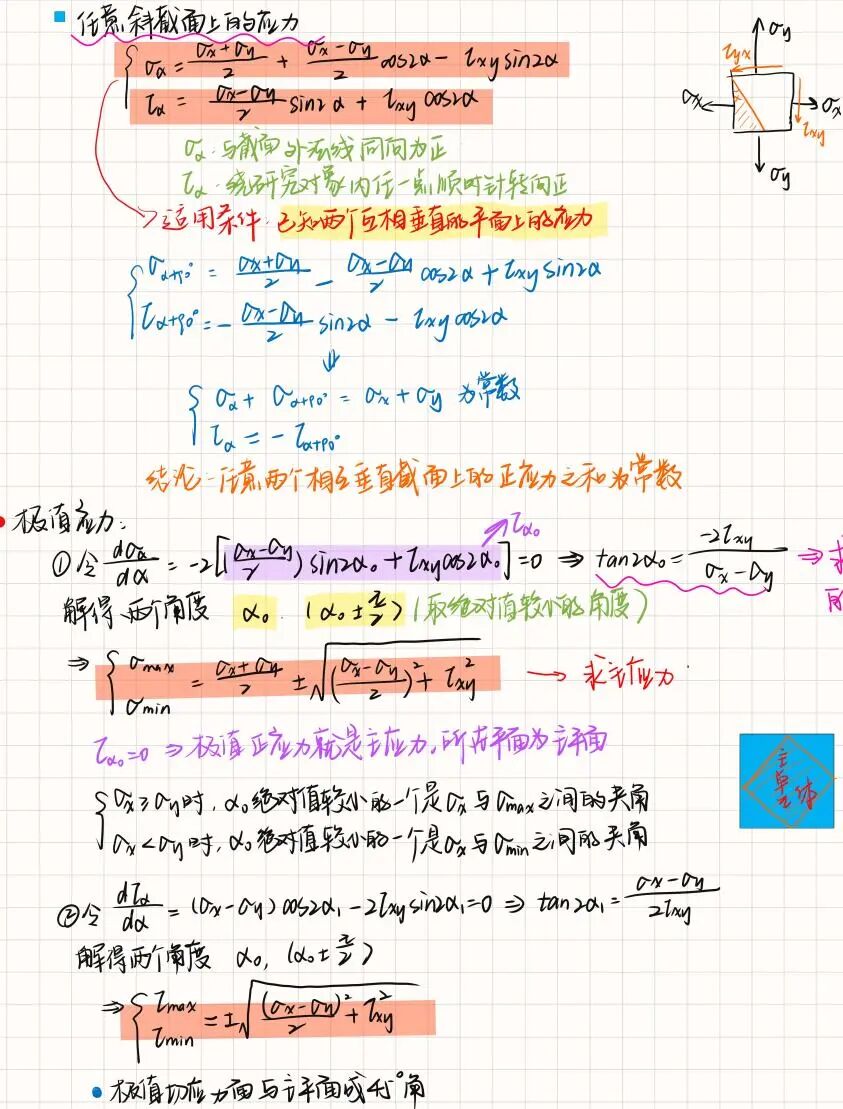 任意斜截面上的应力
σα = (σx+σy)/2 + (σx-σy)/2 cos2α - τxy sin2α
τα = (σx-σy)/2 sin2α + τxy cos2α
σα:与截面外法线同向为正
τα:绕研究对象内任一点顺时针转向正
适用条件:已知两个互相垂直的平面上的应力
σα+90° = (σx+σy)/2 - (σx-σy)/2 cos2α + τxy sin2α
τα+90° = -(σx-σy)/2 sin2α - τxy cos2α
⇓
σα + σα+90° = σx + σy 为常数
τα = -τα+90°
结论-任意两个相互垂直截面上的正应力之和为常数
σy
τyx
σx
σx
τxy
σy
极值应力:
τα0
①令 dσα/dα = -2[(σx-σy)/2) sin2α0 + τxy cos2α0] = 0 ⇒ tan2α0 = -2τxy/(σx-σy) ⇒
解得两个角度 α0, (α0 ± π/2) (取绝对值较小的角度)
⇒ { σmax σmin = (σx+σy)/2 ± √(((σx-σy)/2)² + τxy²) → 求主应力
τα0=0 ⇒ 极值正应力就是主应力,所在平面为主平面
主单元体
σx≥σy时,α0绝对值较小的一个是σx与σmax之间的夹角
σx<σy时,α0绝对值较小的一个是σx与σmin之间的夹角
②令 dτα/dα = (σx-σy)cos2α1 - 2τxy sin2α1 = 0 ⇒ tan2α1 = (σx-σy)/2τxy
解得两个角度 α0, (α0 ± π/2)
⇒ { τmax τmin = ±√((σx-σy)²/2 + τxy²)
极值切应力面与主平面成45°角